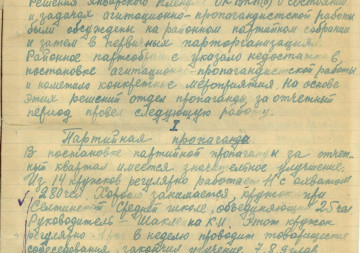 решения январского пленума ЦК ВКП(б) о состоянии
и задачах агитационно-пропагандистской работы
были обсуждены на районном партийном собрании
и затем в первичных парторганизациях.
Районное партсобрание указало недостатки в
постановке агитационно-пропагандистской работы
и наметило конкретные мероприятия. На основе
этих решений отдел пропаганды за отчетный
период провел следующую работу.
I
Партийная пропаганда
В постановке партийной пропаганды за отчет-
ный квартал имеется значительное улучшение.
Из 14 кружков регулярно работает 11 с охватом
280 чел. Хорошо занимается кружок при
средней школе, объединяющий 25 чел
Руководитель К.И. Этот кружок
регулярно в неделю проводит товарищеские
собеседования, закончил изучение 7, 8, 9 глав